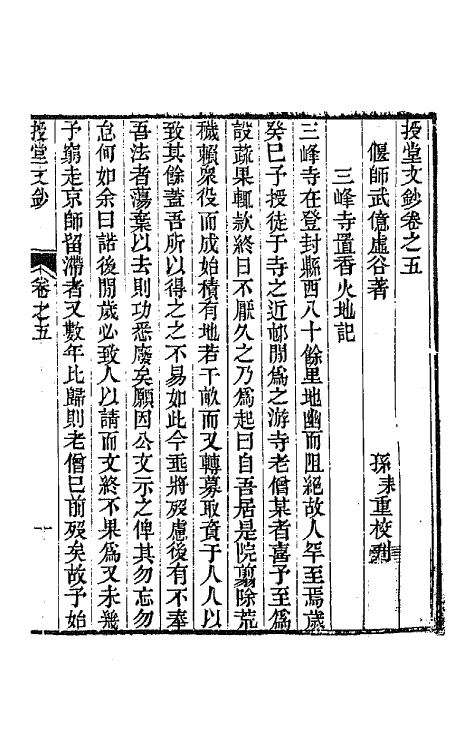 授堂文鈔卷之五
偃師武億虛谷著　孫耒重校栞
三峰寺置香火地記
三峰寺在登封縣西八十餘里地幽而阻絕故人罕至焉歲
癸巳予授徒于寺之近邨閒爲之游寺老僧某者喜予至爲
設蔬果輒款終日不厭久之乃爲起曰自吾居是院翦除荒
穢賴衆役而成始積有地若干畝而又轉募取資于人人以
致其餘蓋吾所以得之之不易如此今耄將歿慮後有不奉
吾法者蕩棄以去則功悉廢矣願因公文示之俾其勿忘勿
怠何如余曰諾後閒歲必致人以請而文終不果爲又未幾
予窮走京師留滯者又數年比歸則老僧已前歿矣故予始
授堂文鈔
卷之五
一